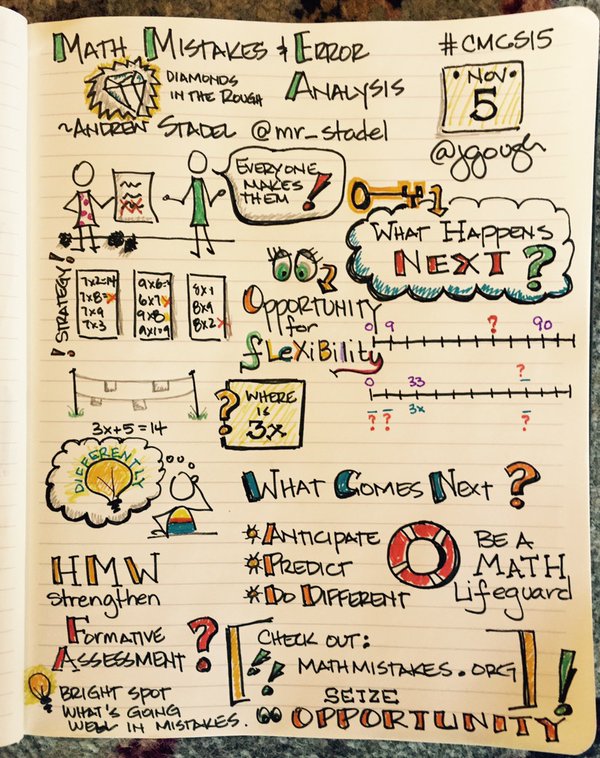 MATH MISTAKES & ERROR
ANALYSIS
#CMCS15
DIAMONDS
IN THE ROUGH
NOV
5
~ANDREW STADEL @mr_stadel
@jgough
EVERYONE
MAKES
THEM!
WHAT HAPPENS
NEXT?
! STRATEGY!
7x2=14
7x8=x
7x9
7x3
6x7x
9x8
8x1
8x9
8x2x
OPPORTUNITY
for
fLeXiBiLity
0 9 ? 90
0 33 ?
? ? 3x ?
? WHERE
IS
3x
3x+5=14
DIFFERENTLY
WHAT COMES NEXT?
ANTICIPATE
PREDICT
DO DIFFERENT
BE A
MATH
Lifeguard
HMW
Strengthen
FORMATIVE
ASSESSMENT?
CHECK OUT:
!! MATHMISTAKES.ORG
BRIGHT SPOT
WHAT'S GOING
WELL IN MISTAKES.
SEIZE
OPPORTUNITY!